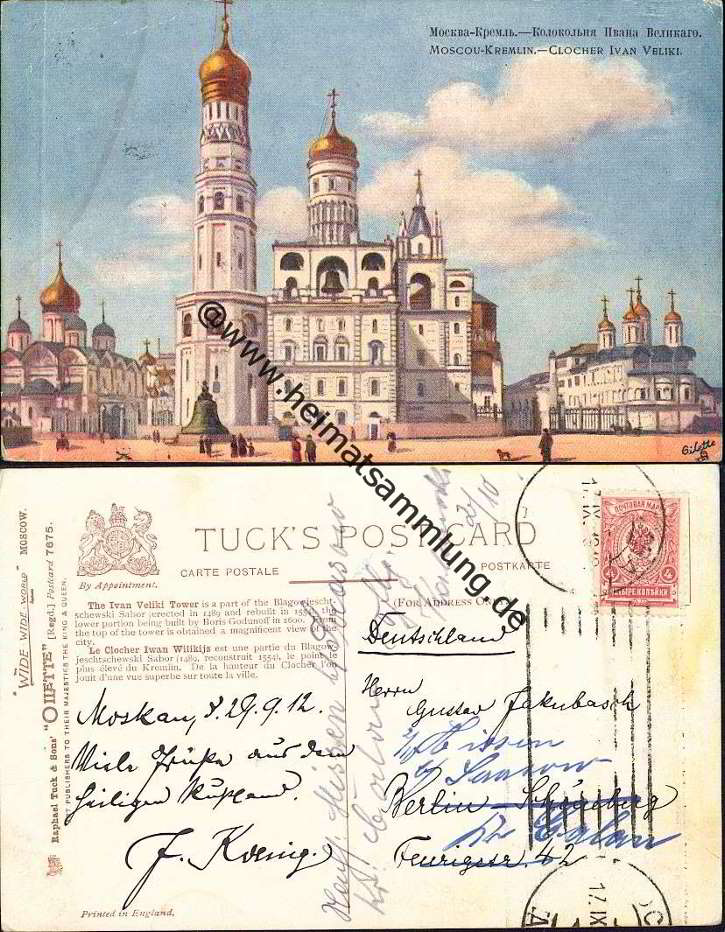 Москва-Кремль.—Колокольня Ивана Великаго.
Moscou-Kremlin.—Clocher Ivan Veliki.
@www.heimatsammlung.de
TUCK'S POSTCARD
CARTE POSTALE
POSTKARTE
By Appointment.
(For Address Only
"WIDE WIDE WORLD" MOSCOW.
Raphael Tuck & Sons' "OILETTE" (Regd.) Postcard 7675.
ART PUBLISHERS TO THEIR MAJESTIES THE KING & QUEEN.
The Ivan Veliki Tower is a part of the Blagowjescht-
schewski Sabor (erected in 1489 and rebuilt in 1554), the
lower portion being built by Boris Godunoff in 1600. From
the top of the tower is obtained a magnificent view of the
city.
Le Clocher Iwan Wilikijs est une partie du Blagow-
jeschtschewski Sabor (1489, reconstruit 1554), le point le
plus élevé du Kremlin. De la hauteur du Clocher l'on
jouit d'une vue superbe sur toute la ville.
ПОЧТОВАЯ МАРКА
4
ЧЕТЫРЕ КОПѢЙКИ
Deutschland
Moskau, d. 29.9.12.
Viele Grüße aus dem
heiligen Rußland.
F. Koenig.
Herrn
Gustav Jakubasch
Berlin-Schöneberg
Feurigstr. 42
17 IX
Printed in England.